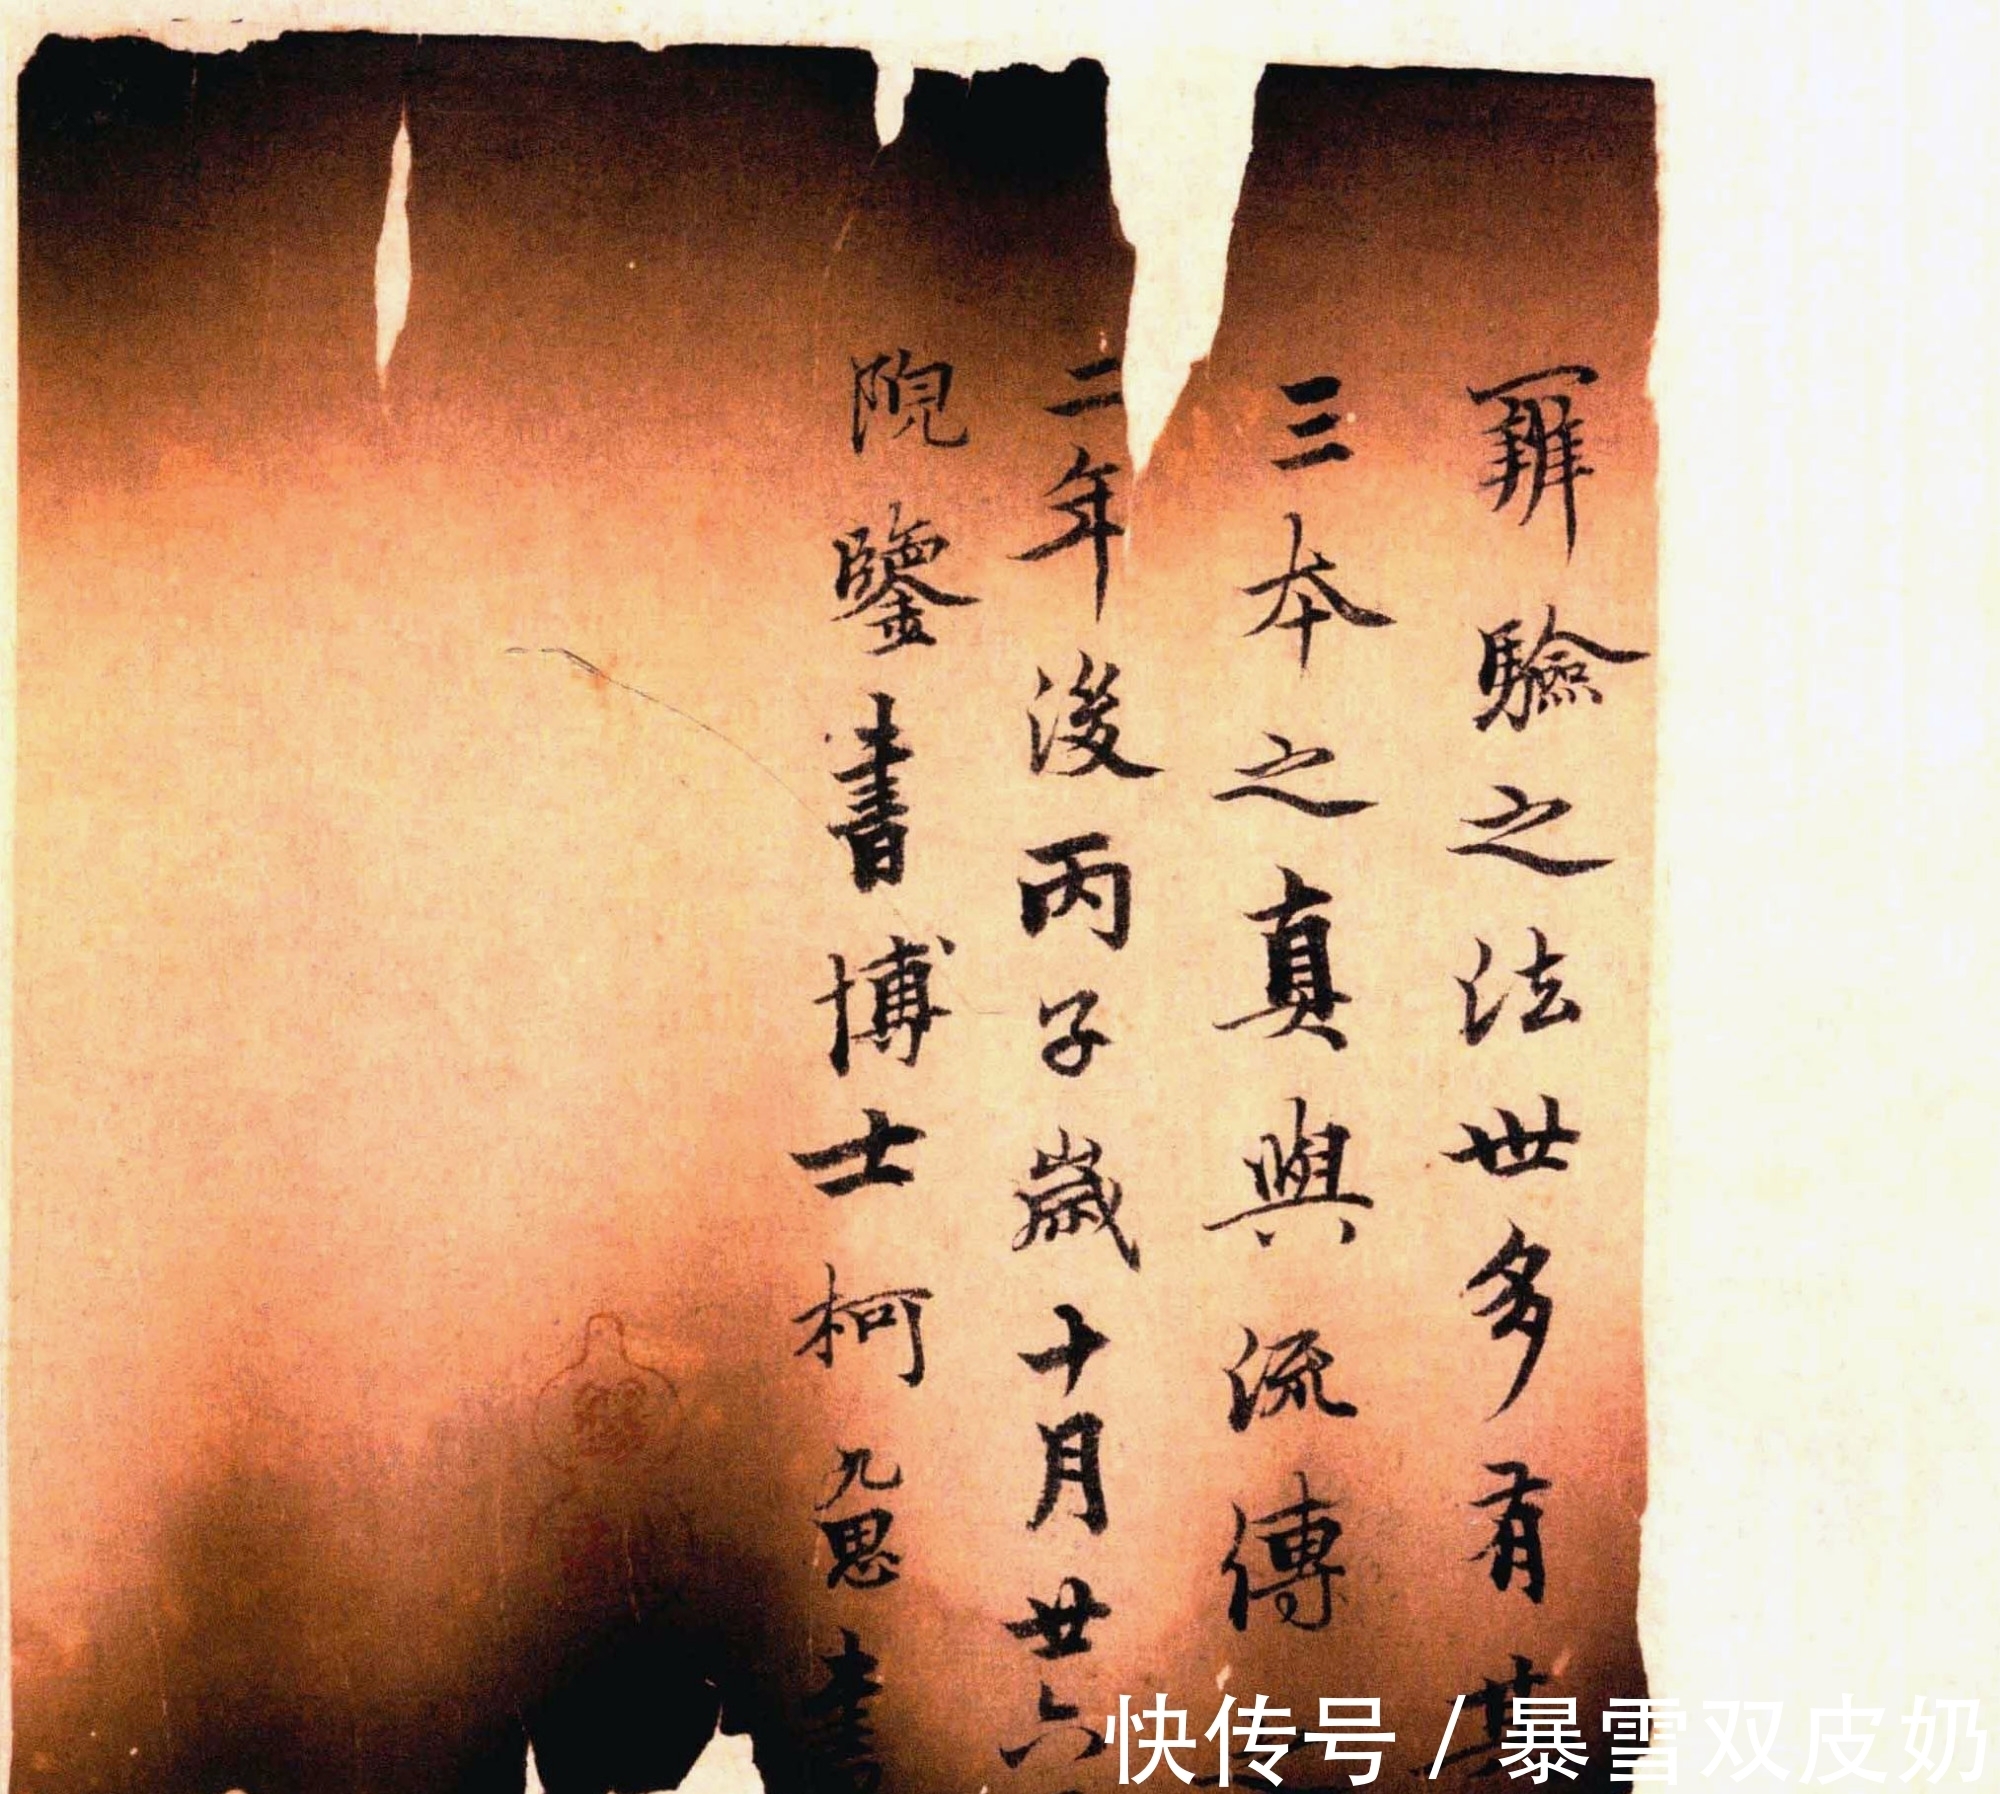 驗之法世多有其
三本之真與流傳之
二年後丙子歲十月廿六
鑒書博士柯九思書
快传号 / 暴雪双皮奶